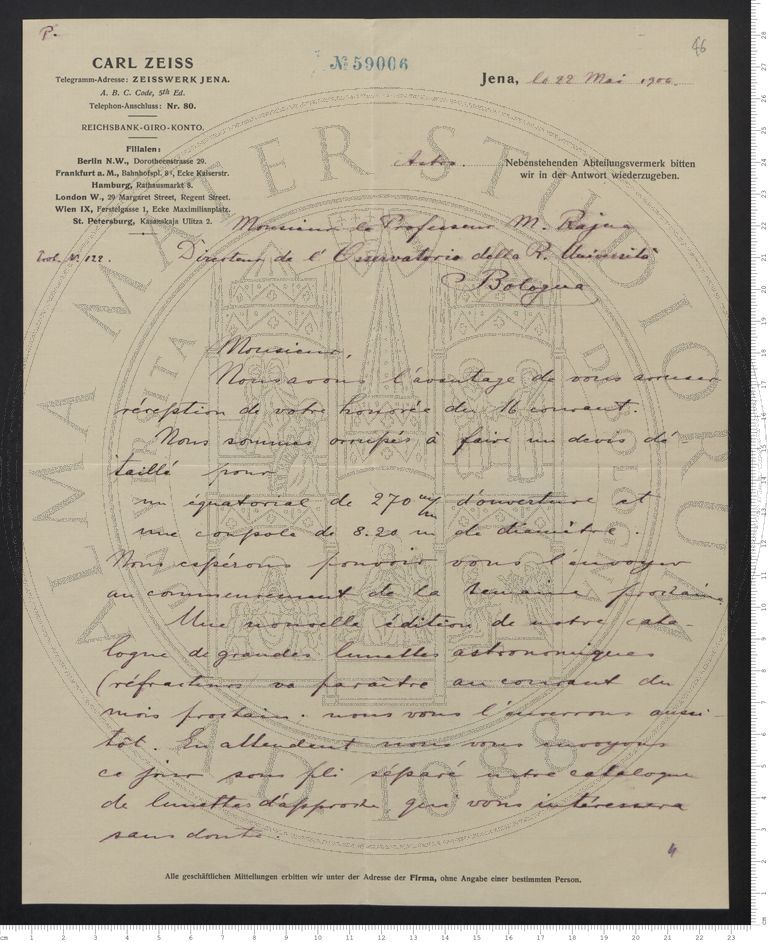 P.
46
CARL ZEISS
Telegramm-Adresse: ZEISSWERK JENA.
A. B. C. Code, 5th Ed.
Telephon-Anschluss: Nr. 80.
REICHSBANK-GIRO-KONTO.
Filialen:
Berlin N.W., Dorotheenstrasse 29.
Frankfurt a. M., Bahnhofspl. 8, Ecke Kaiserstr.
Hamburg, Rathausmarkt 8.
London W., 29 Margaret Street, Regent Street.
Wien IX, Ferstelgasse 1, Ecke Maximilianplatz.
St. Petersburg, Kasanskaja Ulitza 2.
№ 59006
Jena, le 22 Mai 1906.
Astro. Nebenstehenden Abteilungsvermerk bitten
wir in der Antwort wiederzugeben.
Monsieur le Professeur M. Rajna
Prot. N. 122.
Directeur de l'Osservatorio della R. Università
Bologna
Monsieur,
Nous avons l'avantage de vous accuser
réception de votre honorée du 16 courant.
Nous sommes occupés à faire un devis dé-
taillé pour
un équatorial de 270 m/m d'ouverture et
une coupole de 8.20 m de diamètre.
Nous espérons pouvoir vous l'envoyer
au commencement de la semaine prochaine
Une nouvelle édition de notre cata-
logue de grandes lunettes astronomiques
(réfracteurs va paraître au courant du
mois prochain. nous vous l'enverrons aussi-
tôt. En attendent nous vous envoyons
ce jour sous pli séparé notre catalogue
de lunettes d'approche qui vous intéressera
sans doute.
Alle geschäftlichen Mitteilungen erbitten wir unter der Adresse der Firma, ohne Angabe einer bestimmten Person.
ALMA MATER STUDIORUM
A.D. 1088